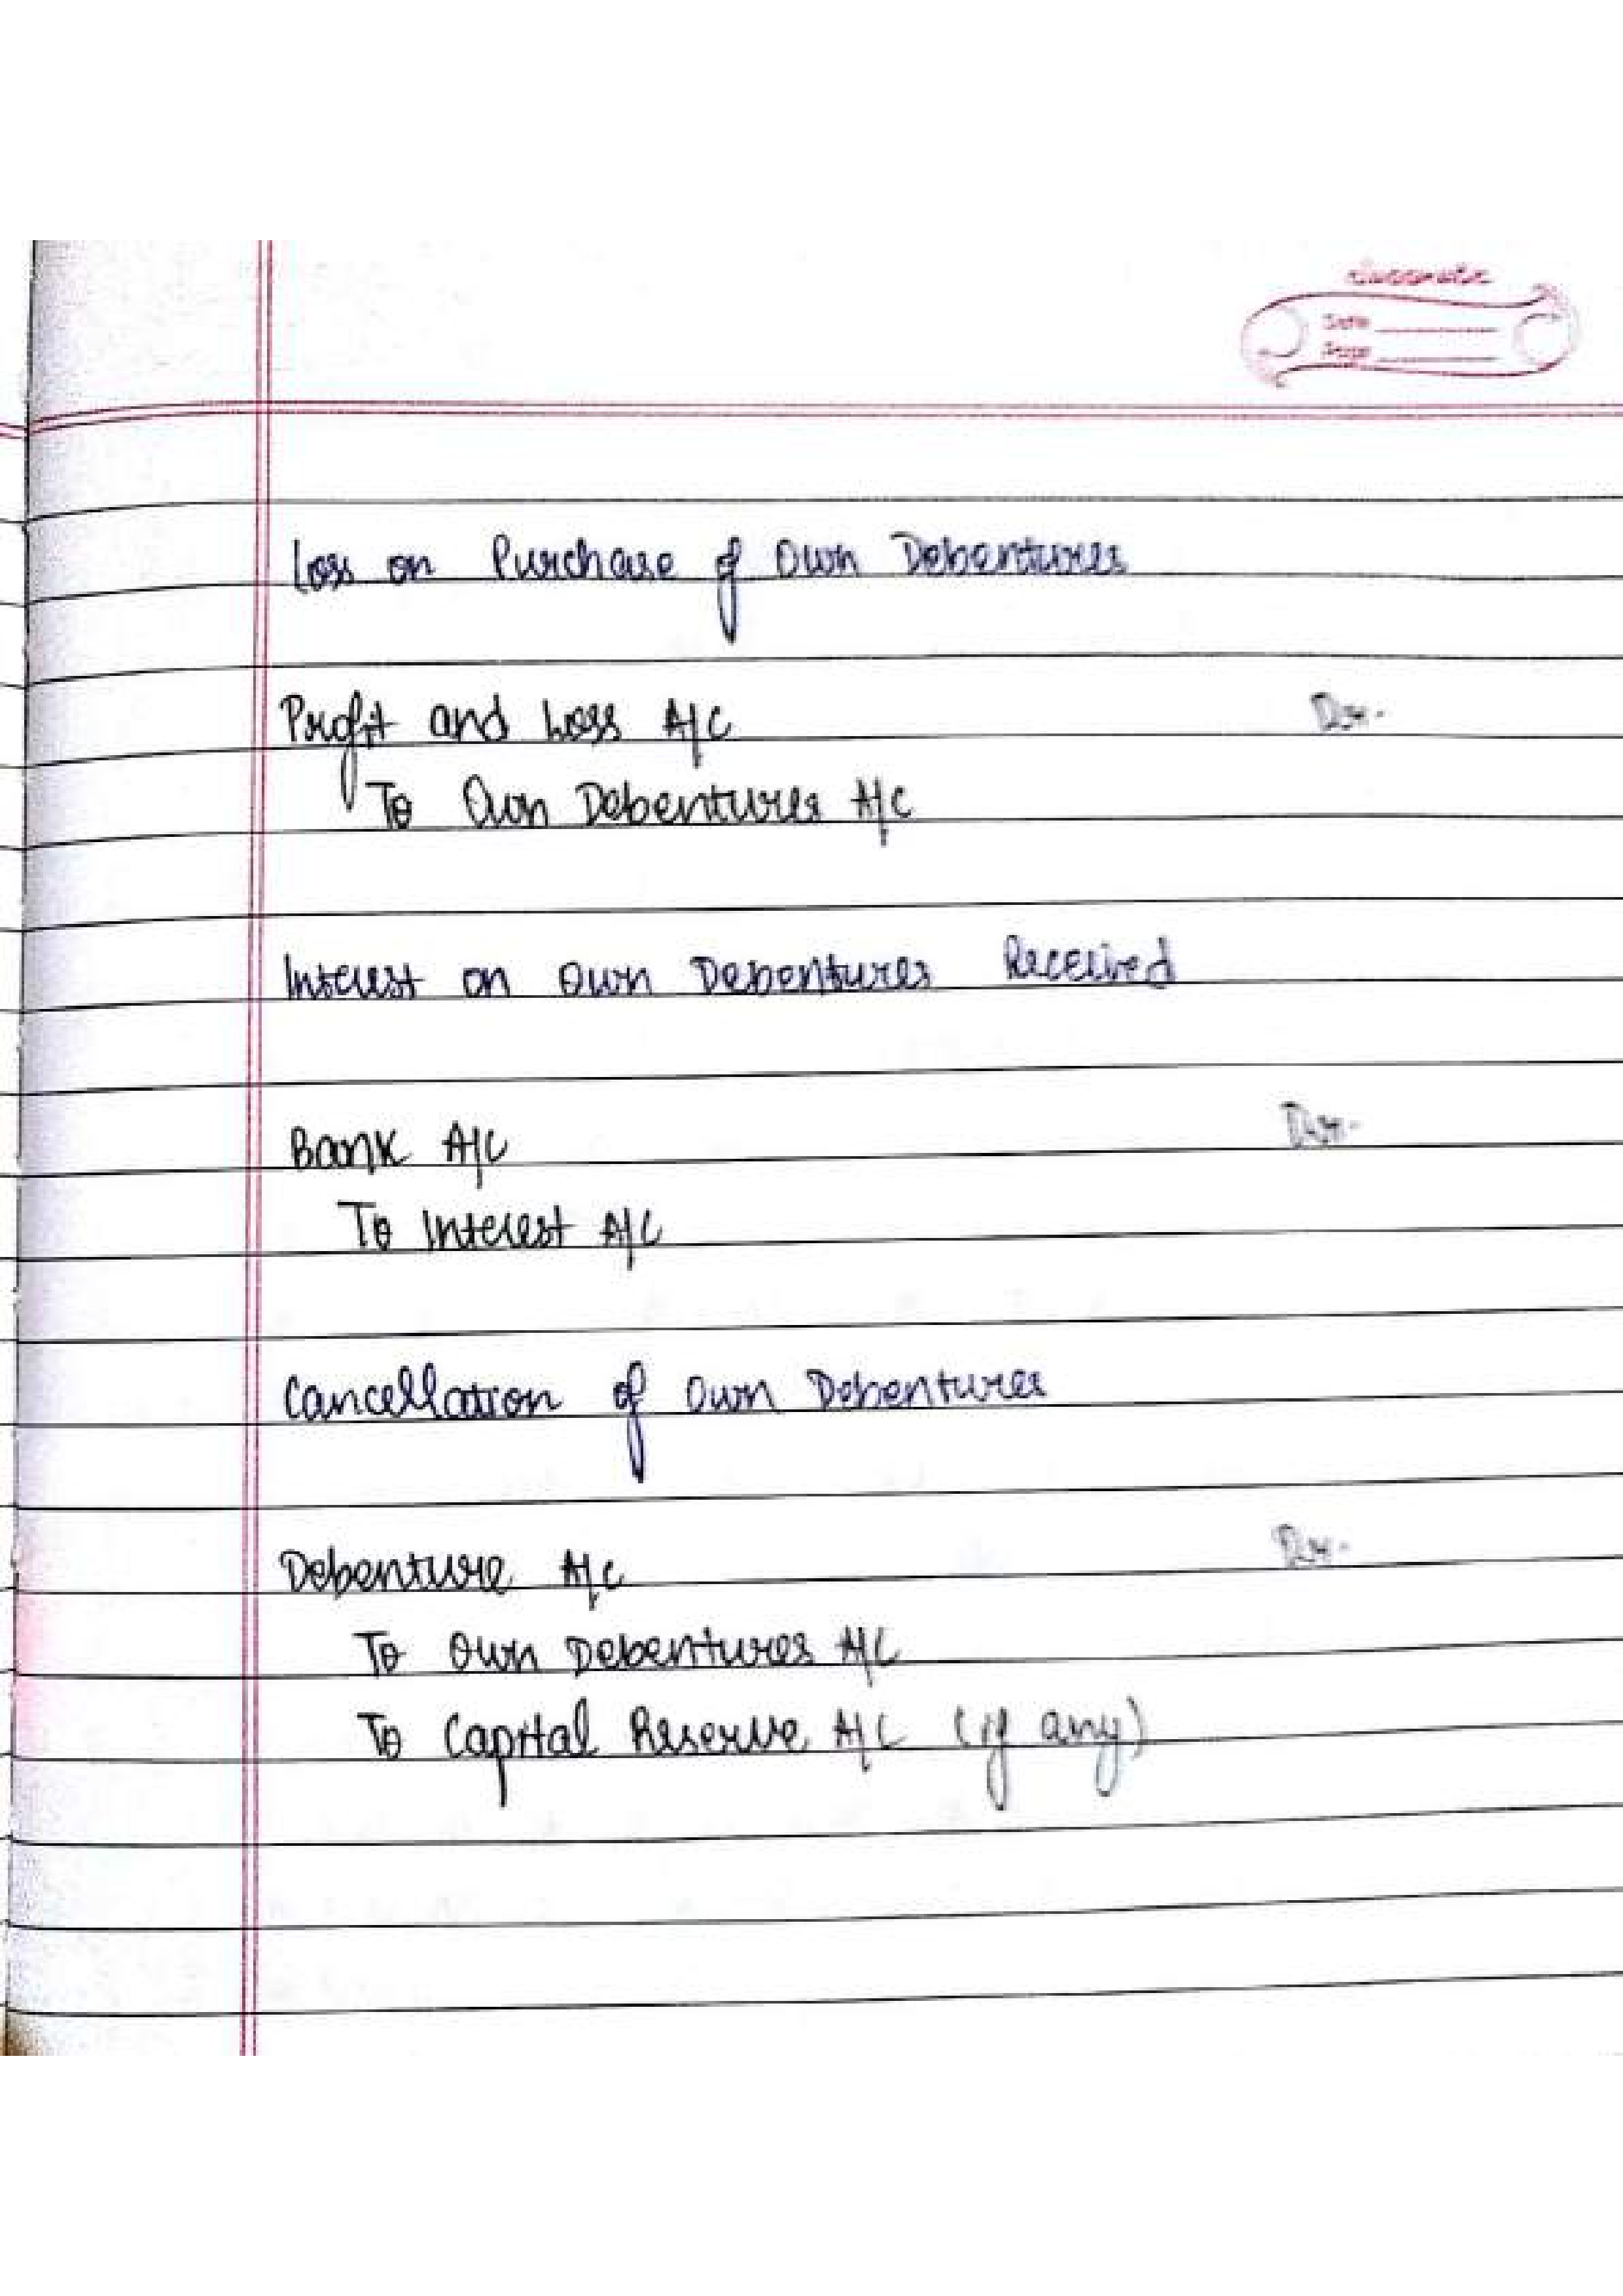 classmate
Date
Page
Loss on Purchase of Own Debentures
Profit and Loss A/C Dr.
To Own Debentures A/C
Interest on Own Debentures Received
Bank A/C Dr.
To Interest A/C
Cancellation of Own Debentures
Debenture A/C Dr.
To Own Debentures A/C
To Capital Reserve A/C (if any)